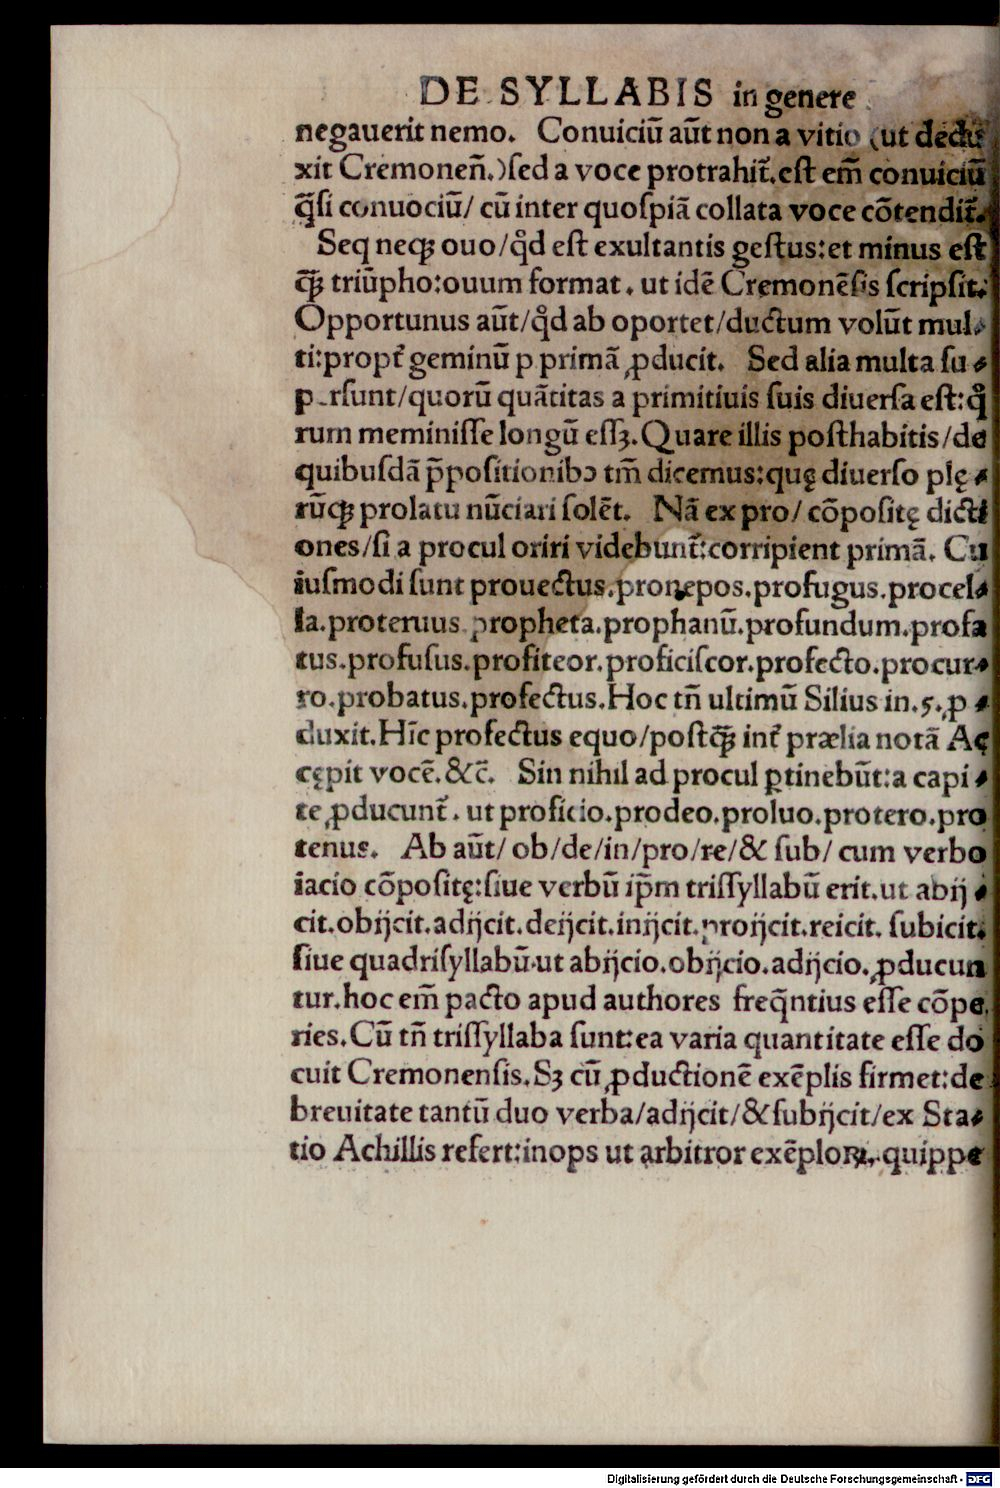 DE SYLLABIS in genere
negauerit nemo. Conuiciū aūt non a vitio (ut dedu
xit Cremoneñ.)ſed a voce protrahit᷑.eſt em̄ conuiciū
q̄ſi conuociū/ cū inter quoſpiā collata voce cōtendit᷑.
Seq neqꝫ ouo/qd̊ eſt exultantis geſtus:et minus eſt
qꝫ̄ triūpho:ouum format. ut idē Cremonēſis ſcripſit.
Opportunus aūt/qd̊ ab oportet/ductum volūt mul⸗
ti:propt᷑ geminū p primā ꝓducit. Sed alia multa ſu⸗
p rſunt/quorū quātitas a primitiuis ſuis diuerſa eſt:q̊
rum meminiſſe longū eſſꝫ.Quare illis poſthabitis/de
quibuſdā p̄poſitionibↄ tm̄ dicemus:quę diuerſo plę⸗
rūqꝫ prolatu nūciari ſolēt. Nā ex pro/ cōpoſitę dicti
ones/ſi a procul oriri videbunt᷑:corripient primā. Cu
iuſmodi ſunt prouectus.pronepos.profugus.procel⸗
la.proteruus.propheta.prophanū.profundum.profa
tus.profuſus.profiteor.proficiſcor.profecto.procur⸗
ro.probatus.profectus.Hoc tn̄ ultimū Silius in.5.ꝓ⸗
duxit.Hīc profectus equo/poſtqꝫ̄ int᷑ prælia notā Ac
cępit vocē.&c̄. Sin nihil ad procul ꝑtinebūt:a capi⸗
te ꝓducunt᷑. ut proficio.prodeo.proluo.protero.pro
tenus. Ab aūt/ ob/de/in/pro/re/& ſub/ cum verbo
iacio cōpoſitę:ſiue verbū ip̄m triſſyllabū erit.ut abĳ⸗
cit.obĳcit.adĳcit.deĳcit.inĳcit.proĳcit.reicit. ſubicit.
ſiue quadriſyllabū.ut abĳcio.obĳcio.adĳcio.ꝓducun
tur.hoc em̄ pacto apud authores freq̄ntius eſſe cōpe
ries.Cū tn̄ triſſyllaba ſunt:ea varia quantitate eſſe do
cuit Cremonenſis.Sꝫ cū ꝓductionē exēplis firmet:de
breuitate tantū duo verba/adĳcit/&ſubĳcit/ex Sta⸗
tio Achillis refert:inops ut arbitror exēploꝝ.quippe
Digitalisierung gefördert durch die Deutsche Forschungsgemeinschaft - DFG